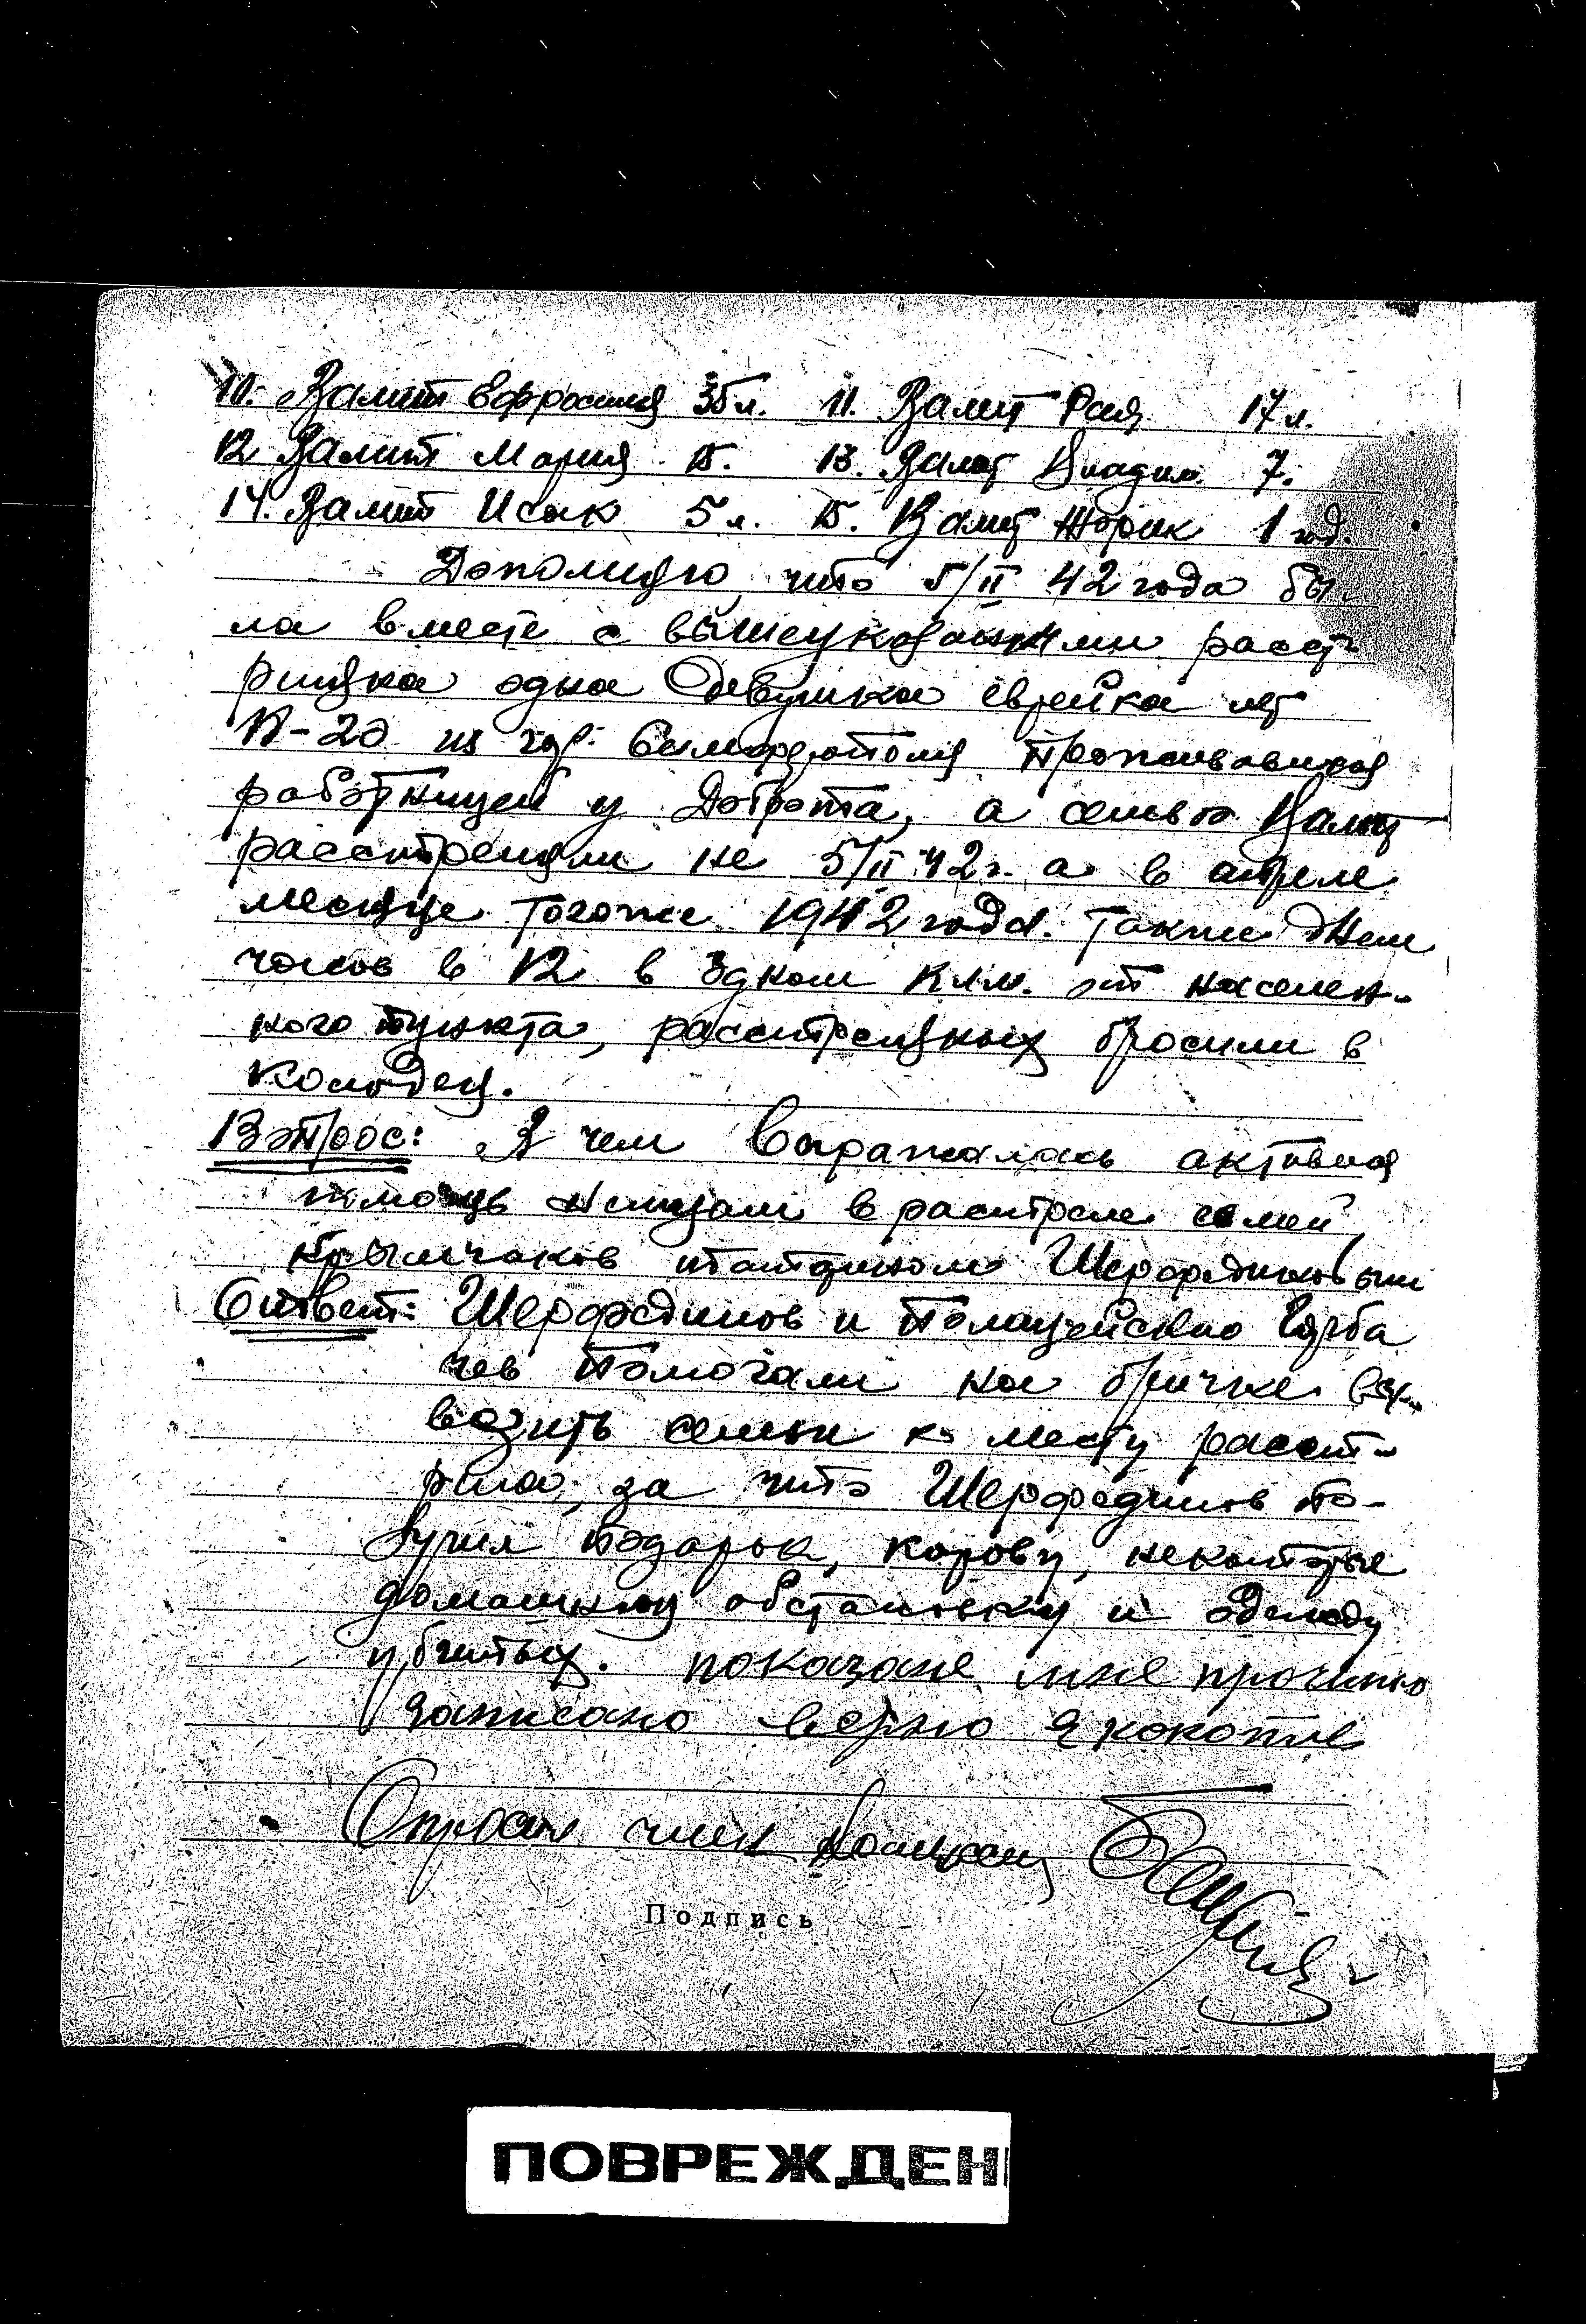 10. Валит Ефросиния 35 л. 11. Валит Рая 17 л.
12 Валит Мария 15. 13. Валит Владим. 7.
14. Валит Исак 5 л. 15. Валит Жорик 1 год.
Дополняю, что 5/II 42 года бы-
ла вместе с вышеуказанными расст-
реляна одна девушка еврейка лет
-20 из гор. Симферополя проживавшая
работницей у а семью Валит
расстреляли не 5/II 42 г. а в апреле
месяце тогоже 1942 года. Также днем
часов в 12 в одном клм. от населен-
ного пункта, расстреляных бросили в
колодец.
Вопрос: В чем выражалась активная
помощь немцам в расстреле семей
крымчаков Шерфединовым
Ответ: Шерфединов и полицейский Горба
чев помогали на бричке вы-
возить семьи к месту расст-
рела, за что Шерфединов по-
лучил подарок, корову, некоторые
домашнюю обстановку и одежду
убитых. показане мне прочитано
записано верно
Опросил член комиссии
Подпись
ПОВРЕЖДЕН